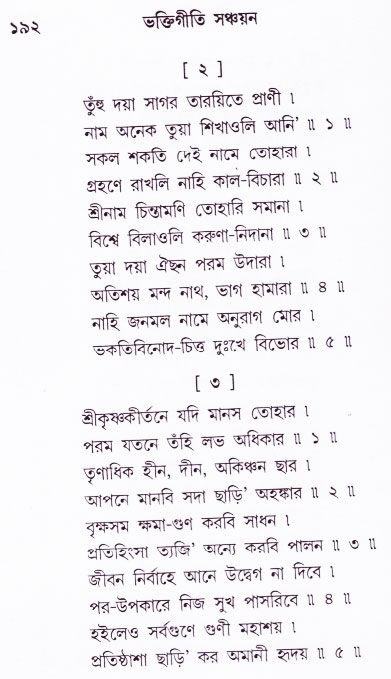 ১৯২
ভক্তিগীতি সঞ্চয়ন
[ ২ ]
তুঁহু দয়া সাগর তারয়িতে প্রাণী ।
নাম অনেক তুয়া শিখাওলি আনি’ ॥ ১ ॥
সকল শকতি দেই নামে তোহারা ।
গ্রহণে রাখলি নাহি কাল-বিচারা ॥ ২ ॥
শ্রীনাম চিন্তামণি তোহারি সমানা ।
বিশ্বে বিলাওলি করুণা-নিদানা ॥ ৩ ॥
তুয়া দয়া ঐছন পরম উদারা ।
অতিশয় মন্দ নাথ, ভাগ হামারা ॥ ৪ ॥
নাহি জনমল নামে অনুরাগ মোর ।
ভকতিবিনোদ-চিত্ত দুঃখে বিভোর ॥ ৫ ॥
[ ৩ ]
শ্রীকৃষ্ণকীর্তনে যদি মানস তোহার ।
পরম যতনে তঁহি লভ অধিকার ॥ ১ ॥
তৃণাধিক হীন, দীন, অকিঞ্চন ছার ।
আপনে মানবি সদা ছাড়ি’ অহঙ্কার ॥ ২ ॥
বৃক্ষসম ক্ষমা-গুণ করবি সাধন ।
প্রতিহিংসা ত্যজি’ অন্যে করবি পালন ॥ ৩ ॥
জীবন নির্বাহে আনে উদ্বেগ না দিবে ।
পর-উপকারে নিজ সুখ পাসরিবে ॥ ৪ ॥
হইলেও সর্বগুণে গুণী মহাশয় ।
প্রতিষ্ঠাশা ছাড়ি’ কর অমানী হৃদয় ॥ ৫ ॥